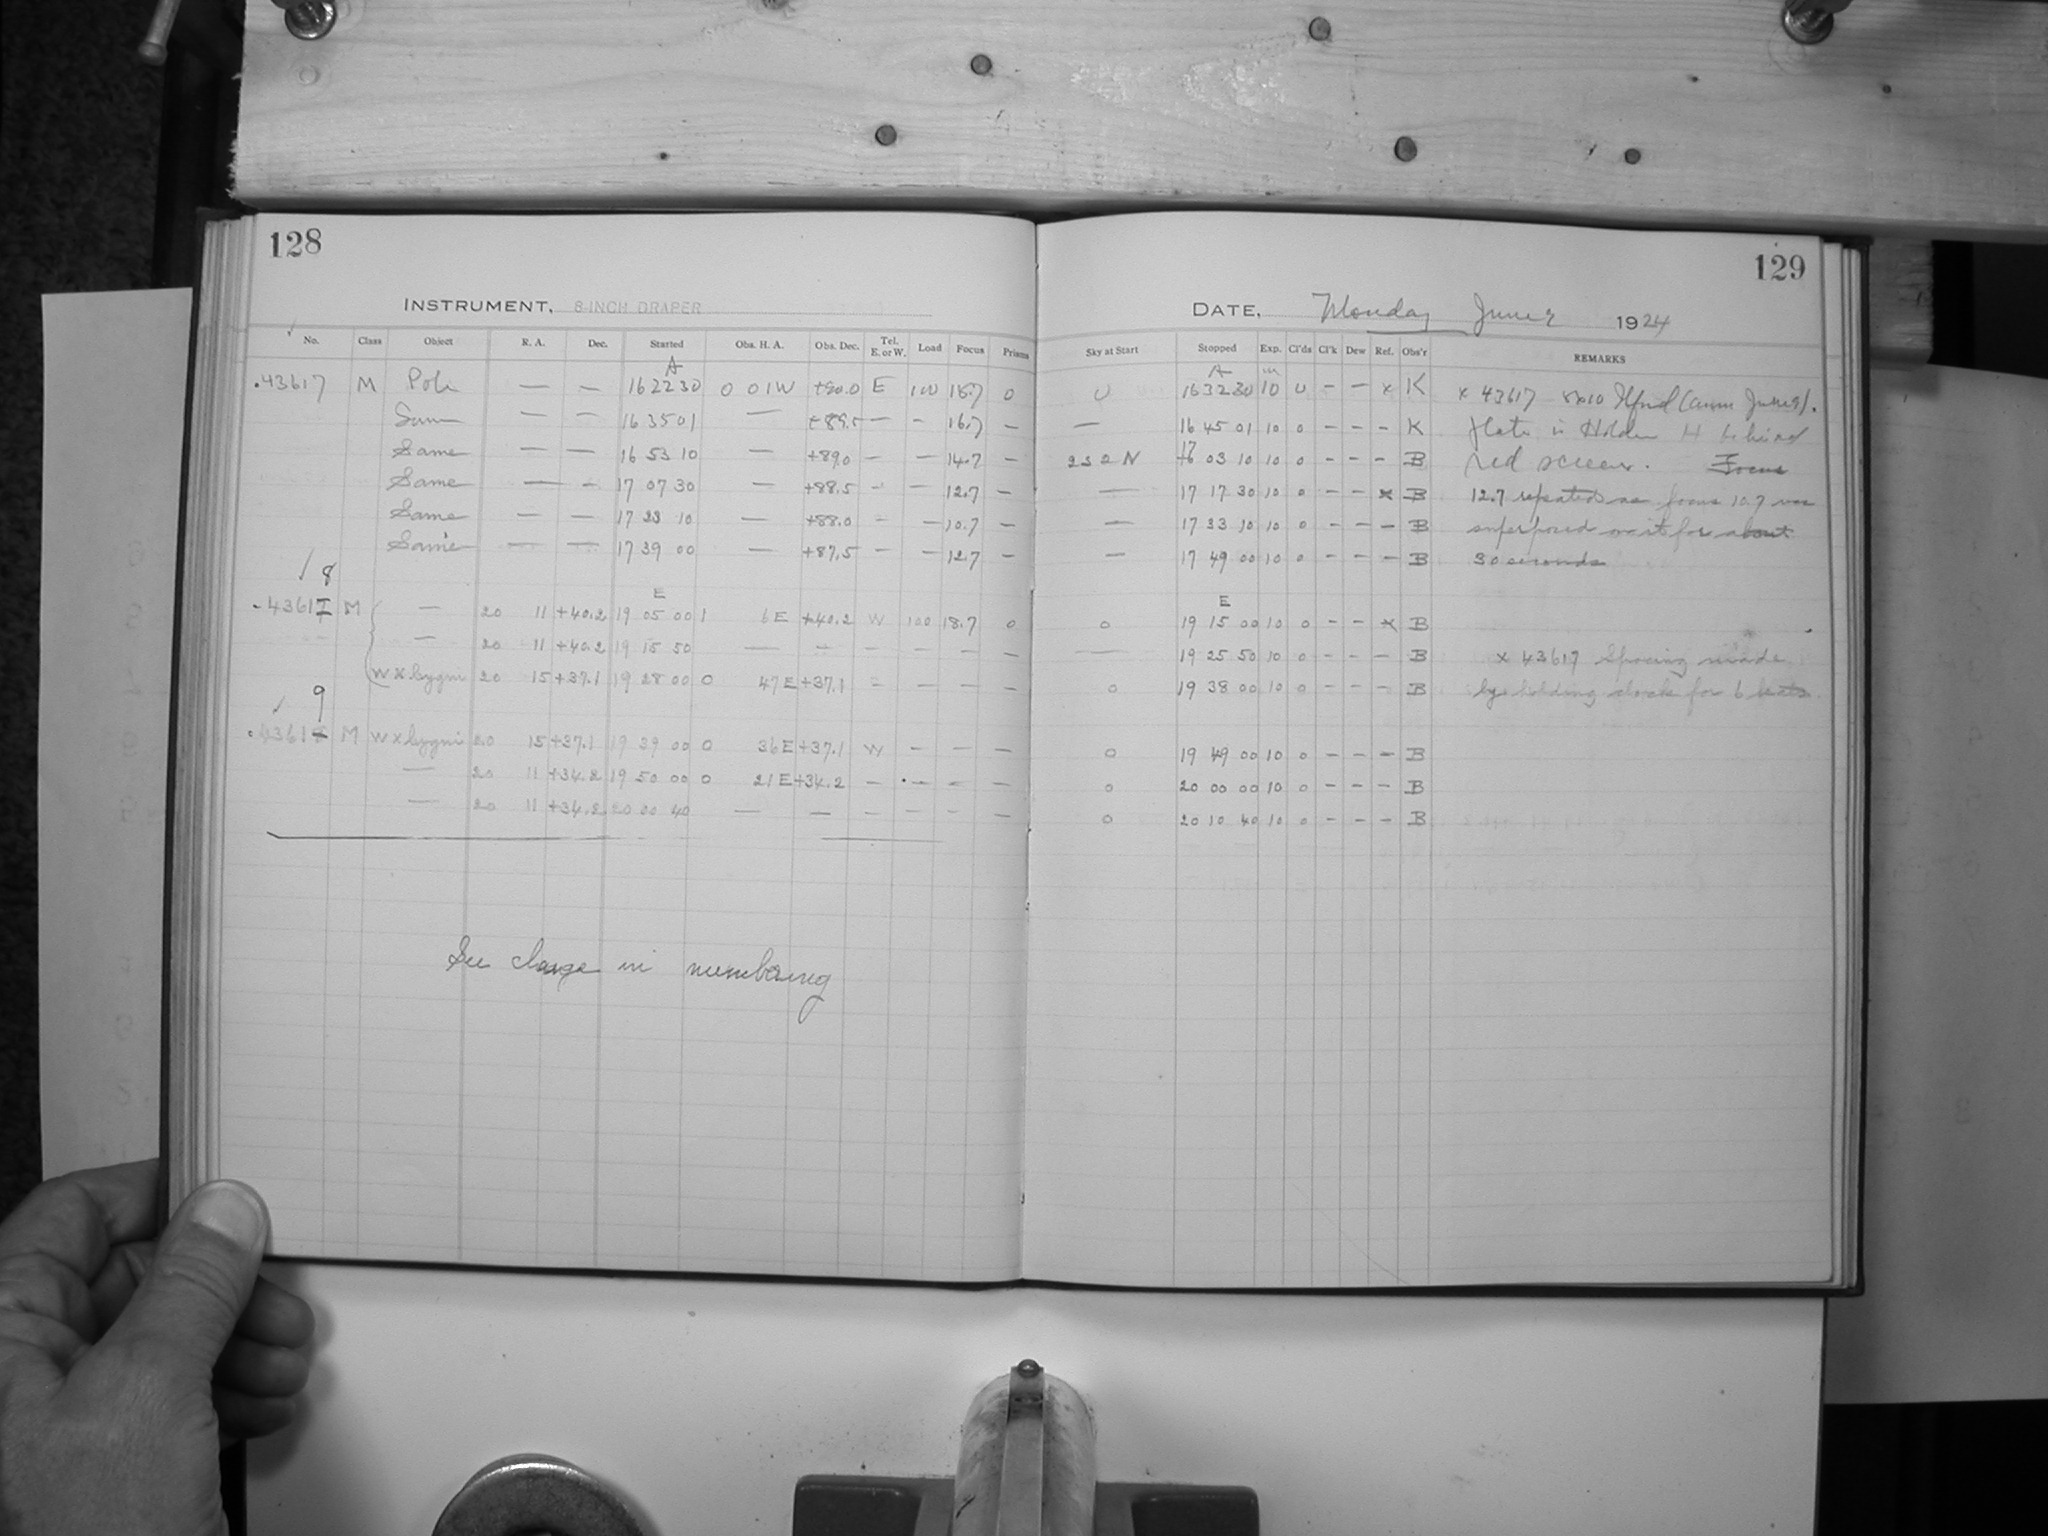 128
INSTRUMENT, 8-INCH DRAPER
No. Class Object R. A. Dec. Started Obs. H. A. Obs. Dec. Tel. E. or W. Load Focus Prisms
A
.43617 M Pole — — 16 22 30 0 01W +90.0 E 100 18.7 0
Same — — 16 35 01 — +89.5 — — 16.7 —
Same — — 16 53 10 — +89.0 — — 14.7 —
Same — — 17 07 30 — +88.5 — — 12.7 —
Same — — 17 23 10 — +88.0 — — 10.7 —
Same — — 17 39 00 — +87.5 — — 12.7 —
8
E
.43617 M — 20 11 +40.2 19 05 00 1 6E +40.2 W 100 18.7 0
— 20 11 +40.2 19 15 50 — — — — — —
W x Cygni 20 15 +37.1 19 28 00 0 47E +37.1 — — — —
9
.4361 M W x Cygni 20 15 +37.1 19 39 00 0 36E +37.1 W — — —
— 20 11 +34.2 19 50 00 0 21E +34.2 — — — —
— 20 11 +34.2 20 00 40 — — — — — —
See change in numbering
129
DATE, Monday June 1924
Sky at Start Stopped Exp. Cl'ds Cl'k Dew Ref. Obs'r REMARKS
A m
0 16 32 30 10 0 — — x K x 43617 8x10 Ilford
— 16 45 01 10 0 — — — K Plate in Holder H behind
2 3 2 N 03 10 10 0 — — — B red screen. Focus
— 17 17 30 10 0 — — x B 12.7 repeated as focus 10.7 was
— 17 33 10 10 0 — — — B superposed wait for about
— 17 49 00 10 0 — — — B 30 seconds
E
0 19 15 00 10 0 — — x B
— 19 25 50 10 0 — — — B x 43617 Spacing made
0 19 38 00 10 0 — — — B by holding clock for 6 beats
0 19 49 00 10 0 — — — B
0 20 00 00 10 0 — — — B
0 20 10 40 10 0 — — — B